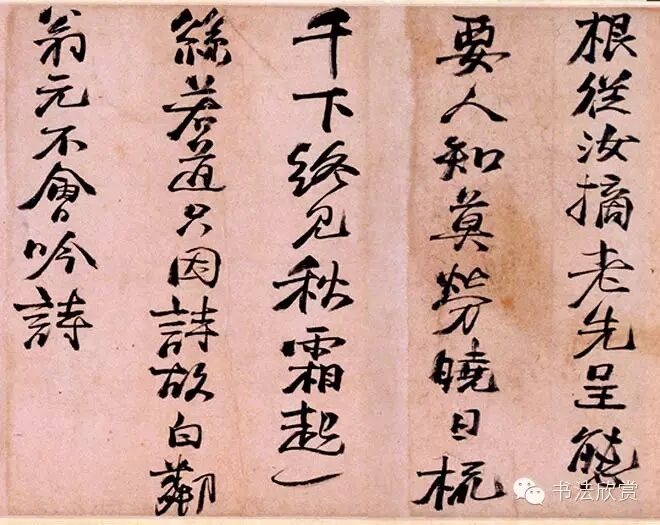 根從汝摘老先呈態
要人知莫勞曉日梳
千下終見秋霜起一
絲若道只因詩故白鄰
翁元不會吟詩
书法欣赏